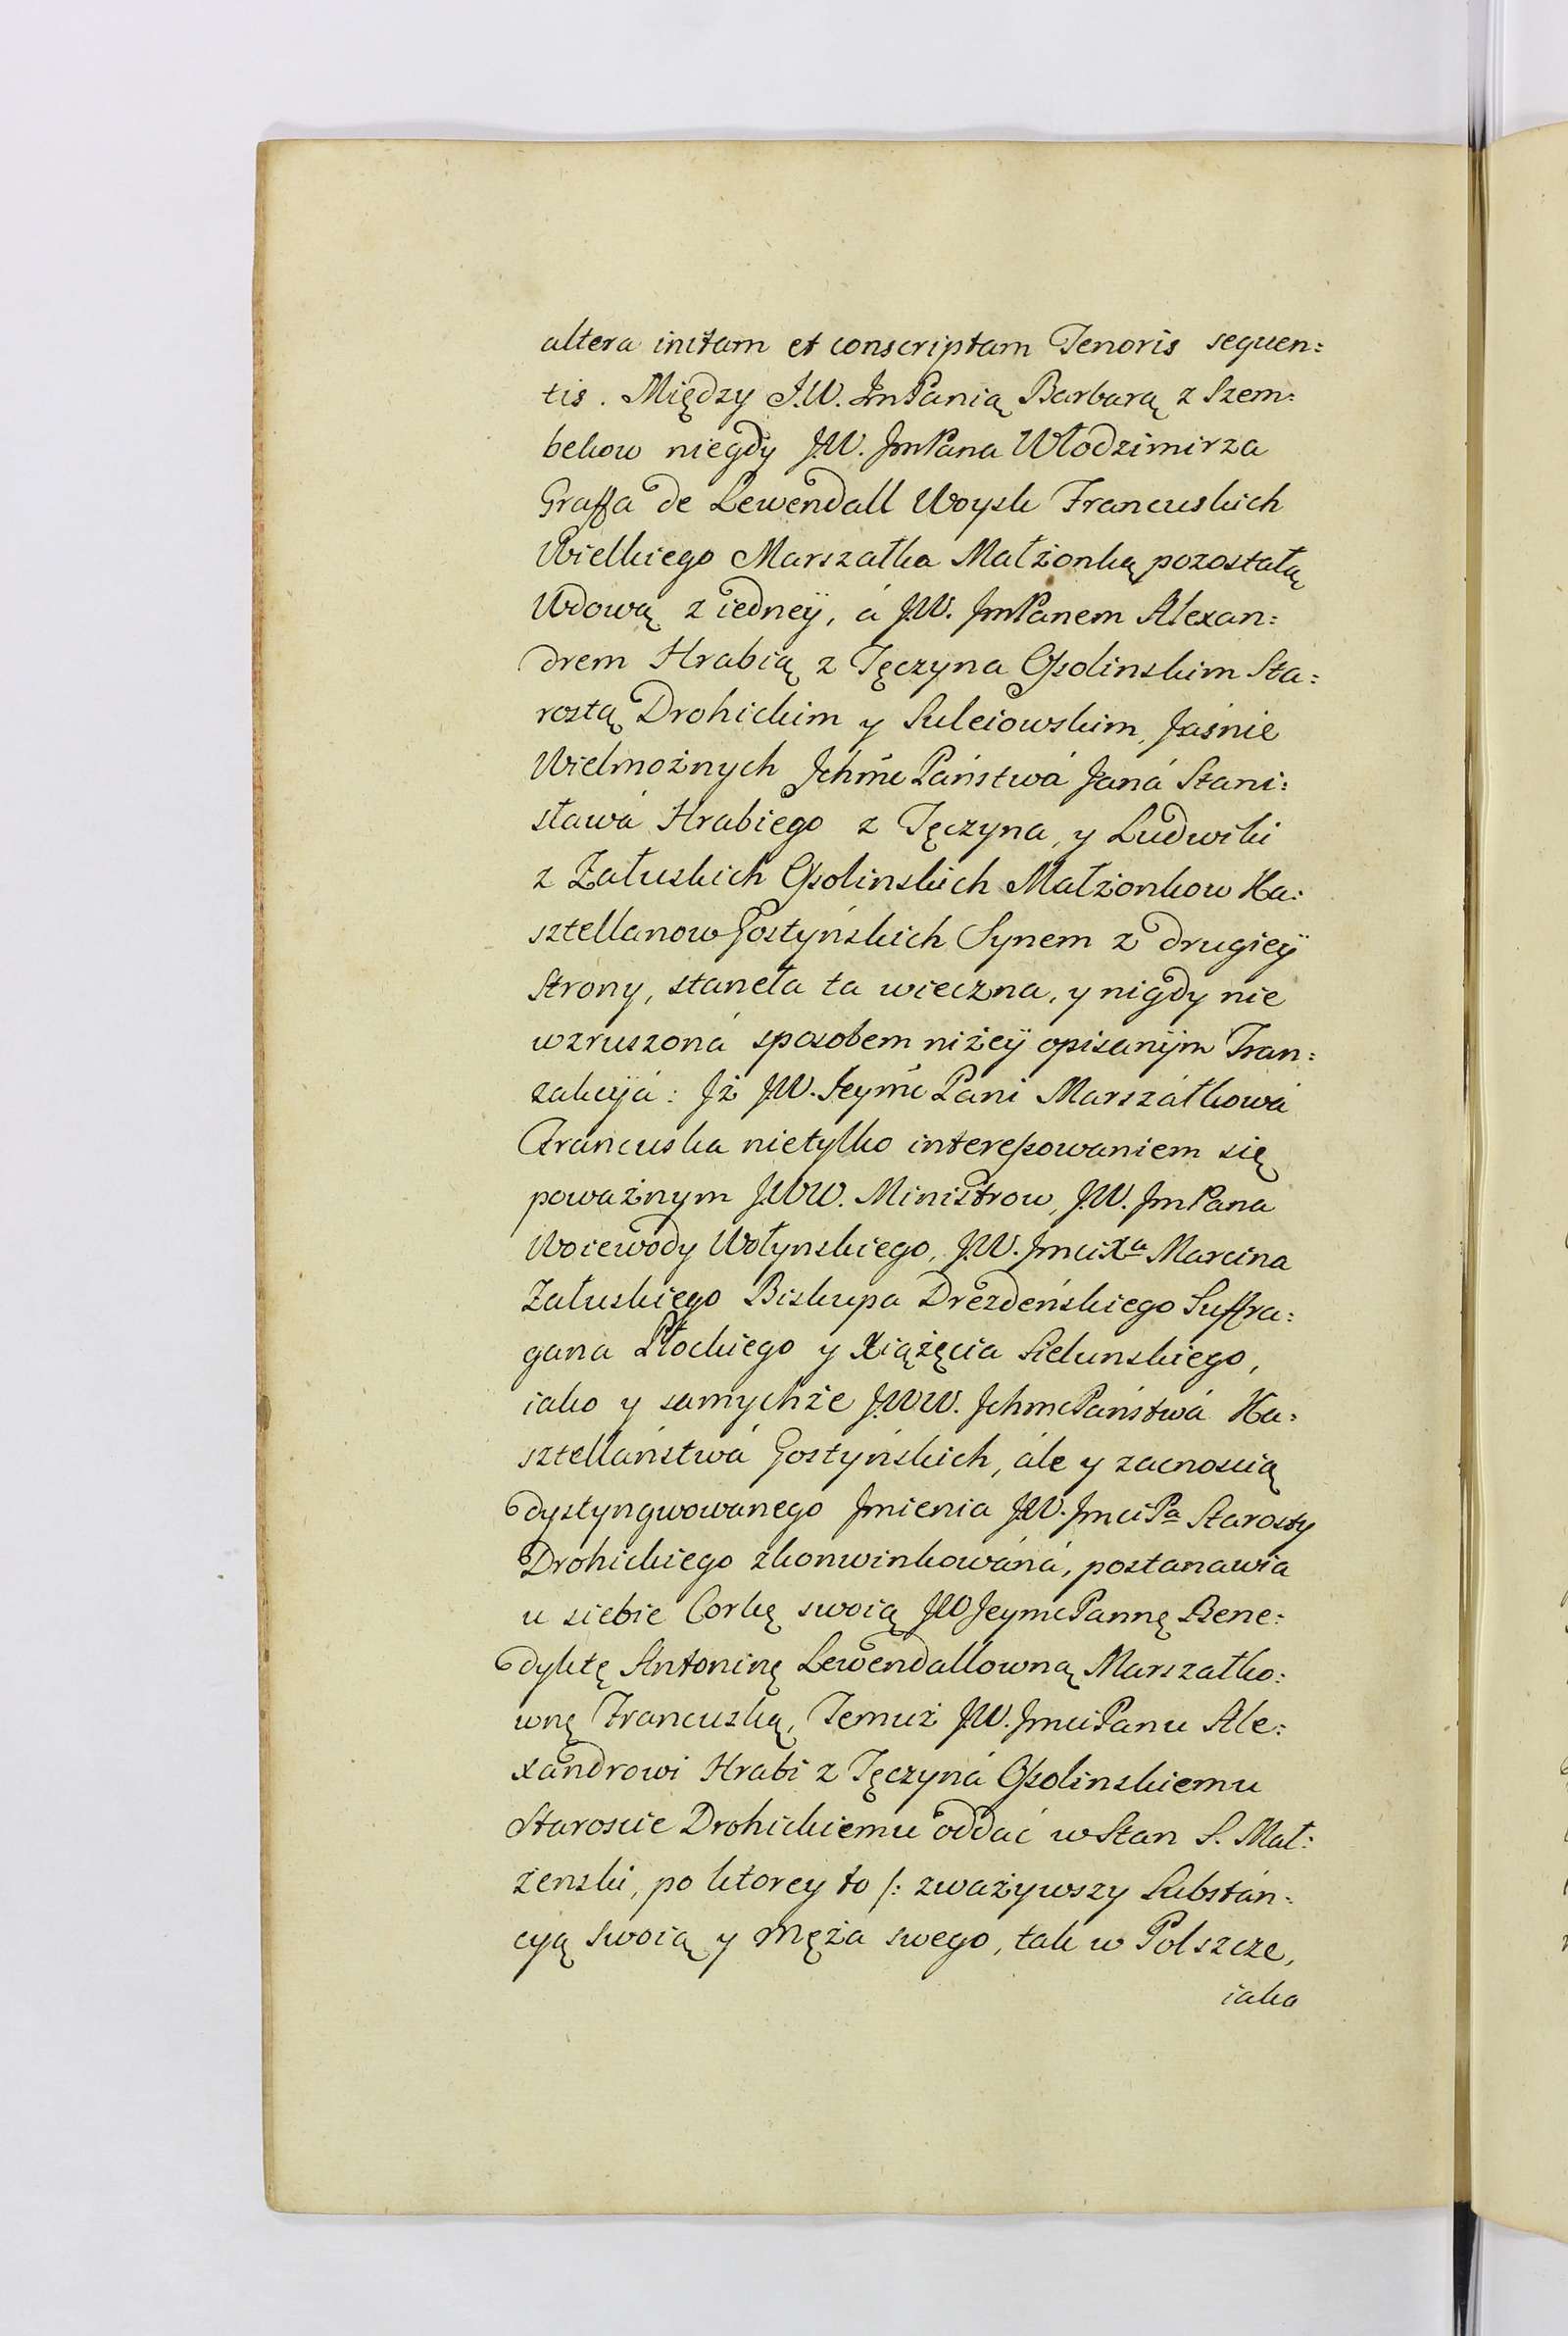 altera initam et conscriptam Tenoris sequen:
tis. Między J.W. JmPanią Barbarą z Szem:
bekow niegdy J.W. JmPana Włodzimirza
Graffa de Lewendall Woysk Francuskich
Wielkiego Marszałka Małżonką pozostałą
Wdową z iedneÿ, á J.W. JmPanem Alexan:
drem Hrabią z Tęczyna Ossolinskim Sta:
rostą Drohickim y Suleiowskim, Jaśnie
Wielmożnych Jchmć Państwá Janá Stani:
sławá Hrabiego z Tęczyna, y Ludwiki
z Załuskich Ossolinskich Małżonkow Ka:
sztellanow Gostyńskich Synem z drugieÿ
Strony, staneła ta wieczna, y nigdy nie
wzruszoná sposobem niżeÿ opisanÿm Tran:
zakcÿá: Jż J.W. Jeymć Pani Marszáłkowá
Francuska nietylko interessowaniem się
poważnym J.WW. Ministrow, J.W. JmPana
Woiewody Wołynskiego, J.W. Jmci Xa Marcina
Załuskiego Biskupa Drezdeńskiego Suffra:
gana Płockiego y Xiążęcia Sielunskiego,
iako y samychże J.WW. Jchmc Państwá Ka:
sztellaństwá Gostyńskich, ále y zacnoscią
dystyngwowanego Jmienia J.W. Jmci Pa Starosty
Drohickiego zkonwinkowáná, postanawia
u siebie Corkę swoią JW Jeymc Pannę Bene:
dyktę Antoninę Lewendallowną Marszałko:
wnę Francuską, Temuż J.W. Jmci Panu Ale:
xandrowi Hrabi z Tęczyná Ossolinskiemu
Staroscie Drohickiemu oddać w Stan S. Mał:
żenski, po ktorey to /: zważywszy Substán:
cyą swoią y Męża swego, tak w Polszcze,
iako